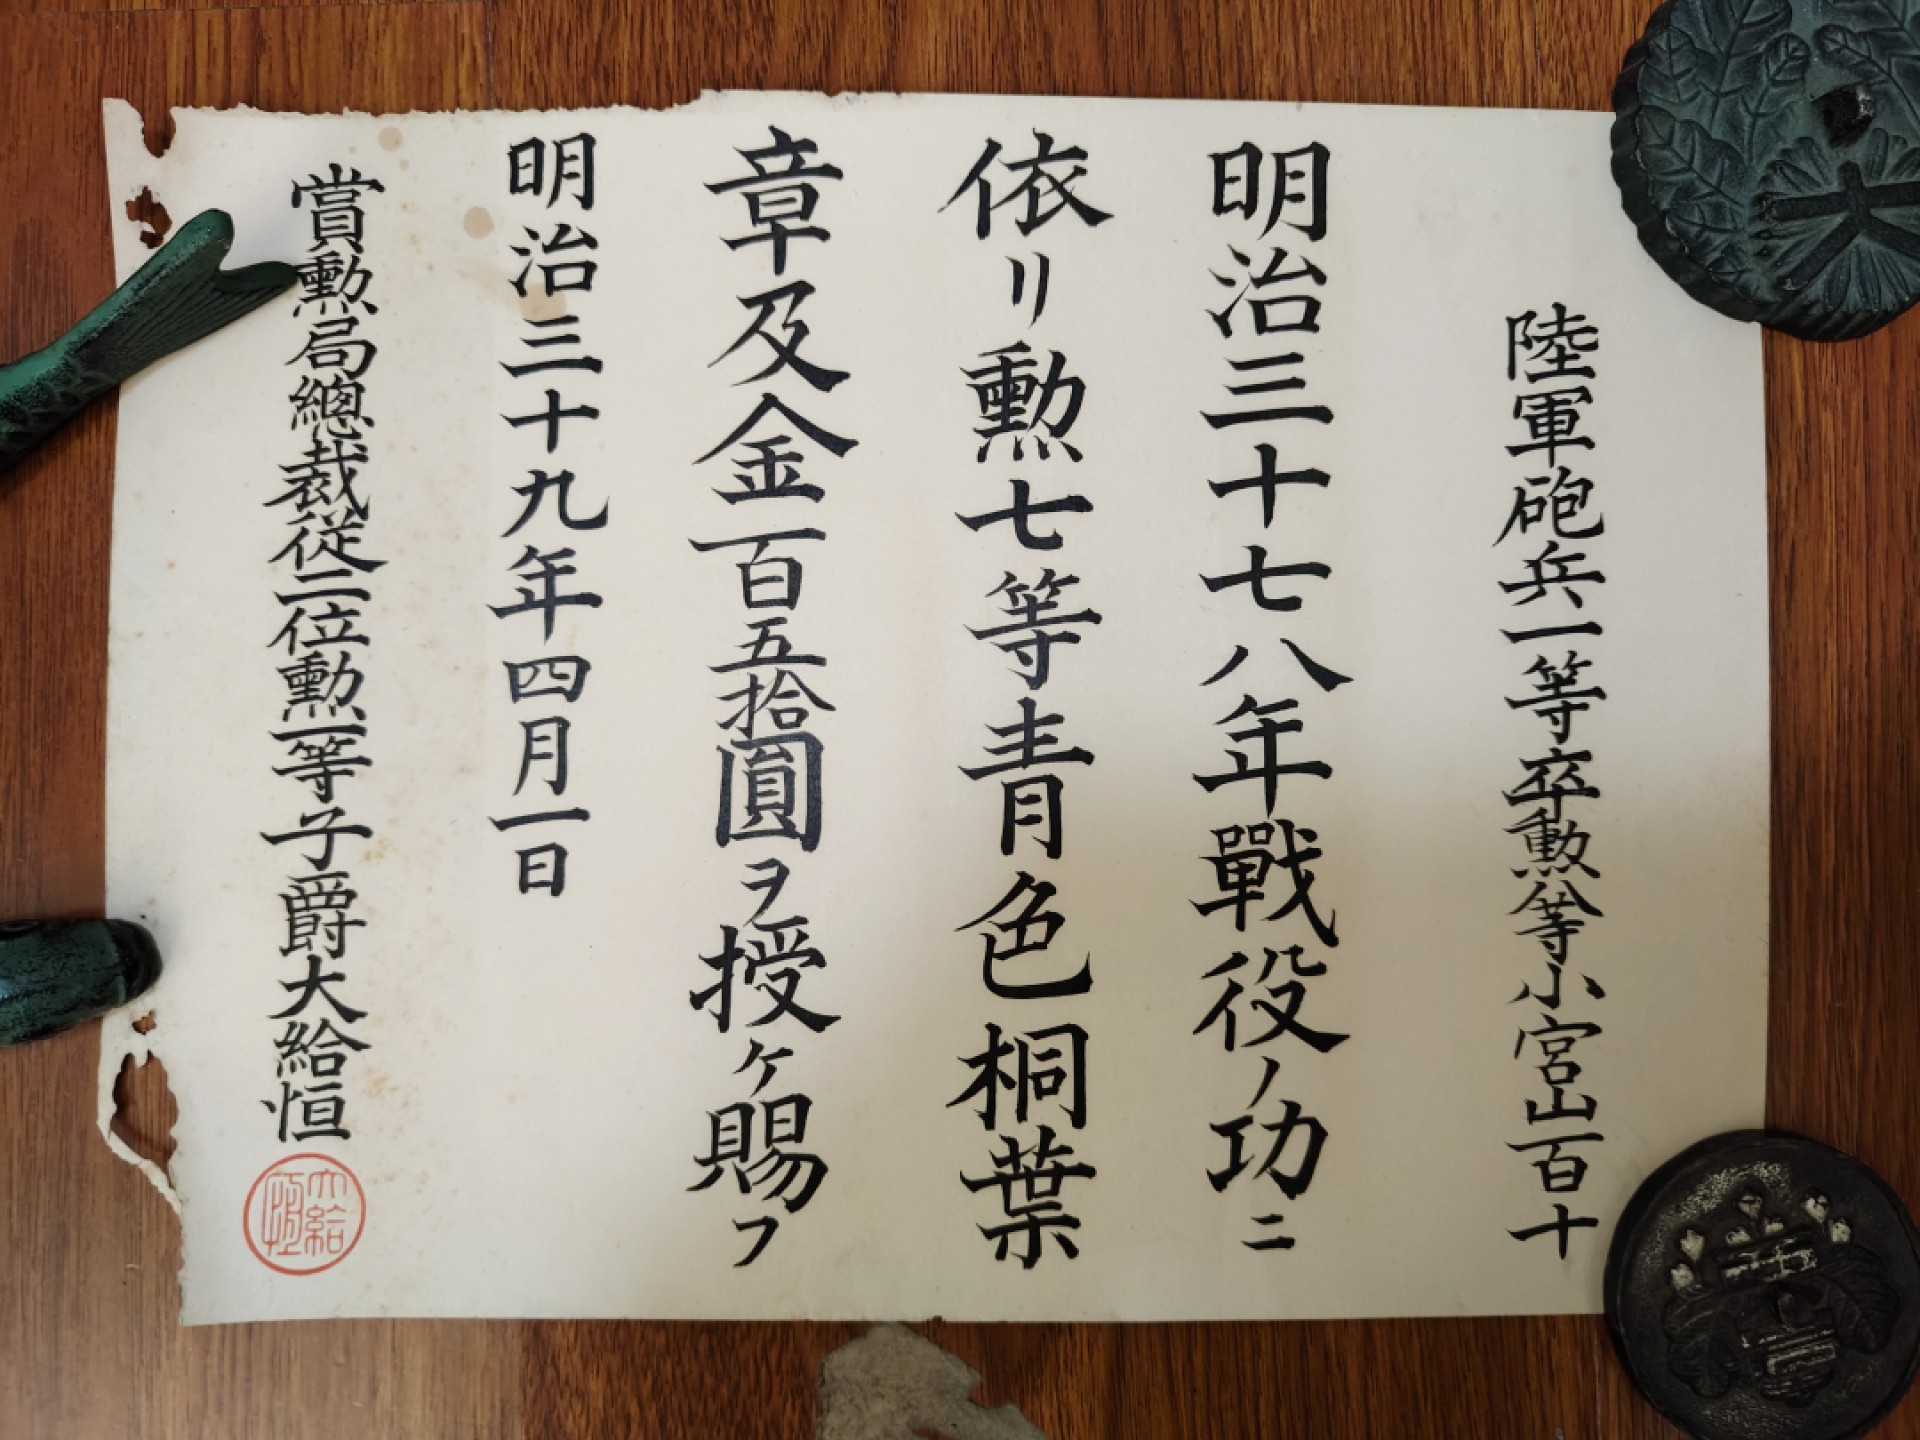 陸軍砲兵一等卒勲八等小宮山百十
明治三十七八年戰役ノ功ニ
依リ勲七等青色桐葉
章及金百五拾圓ヲ授ケ賜フ
明治三十九年四月一日
賞勲局總裁從二位勲一等子爵大給恒
大給恒